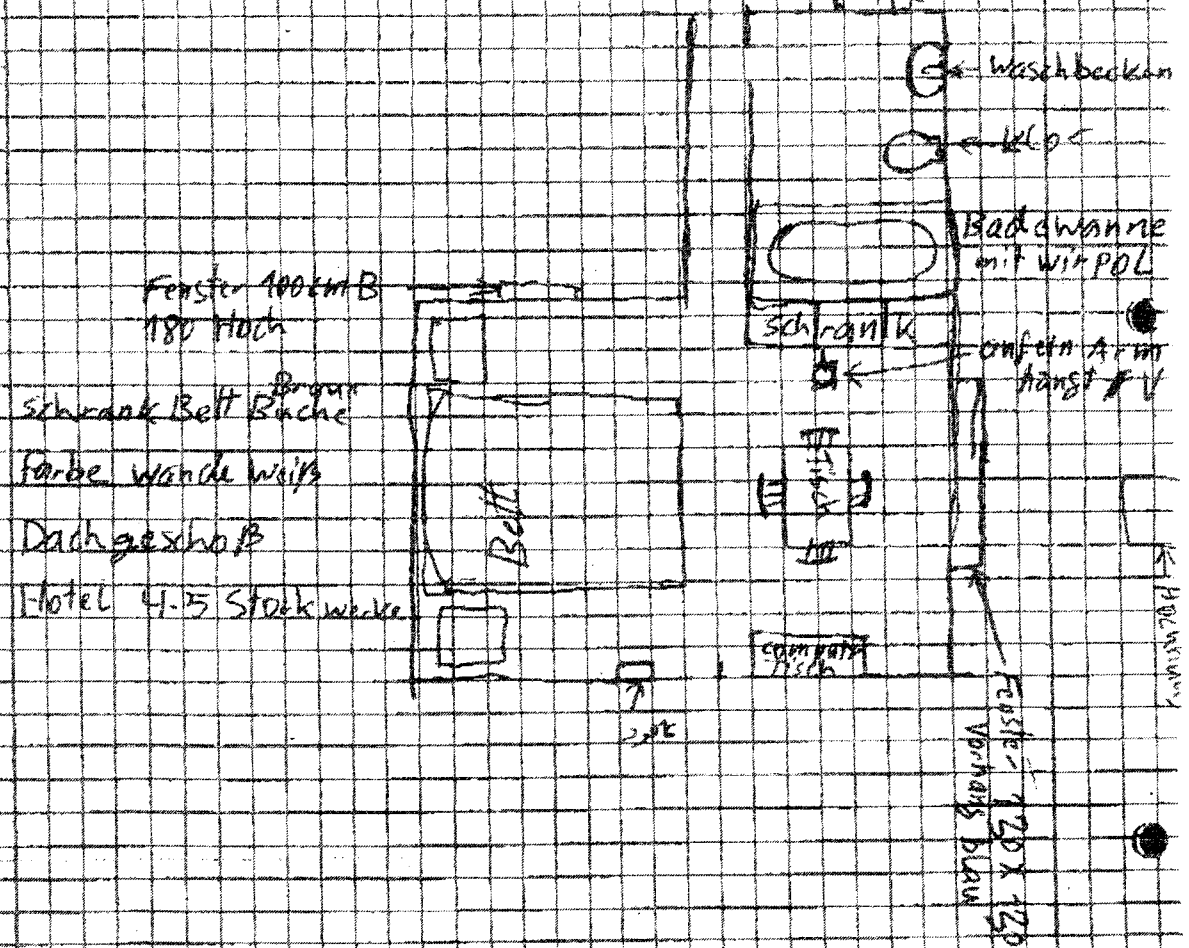 Waschbecken
Klo
Badewanne
mit wirPOL
Fenster 100cm B
180 Hoch
Schrank
auf ein Arm
hängt TV
Braun
Schrank Bett Buche
Farbe wände weiß
Dachgeschoß
Hotel 4-5 Stockwerke
Bett
Tisch
computer
Tisch
Fenster 120 x 120
Vorhang blau